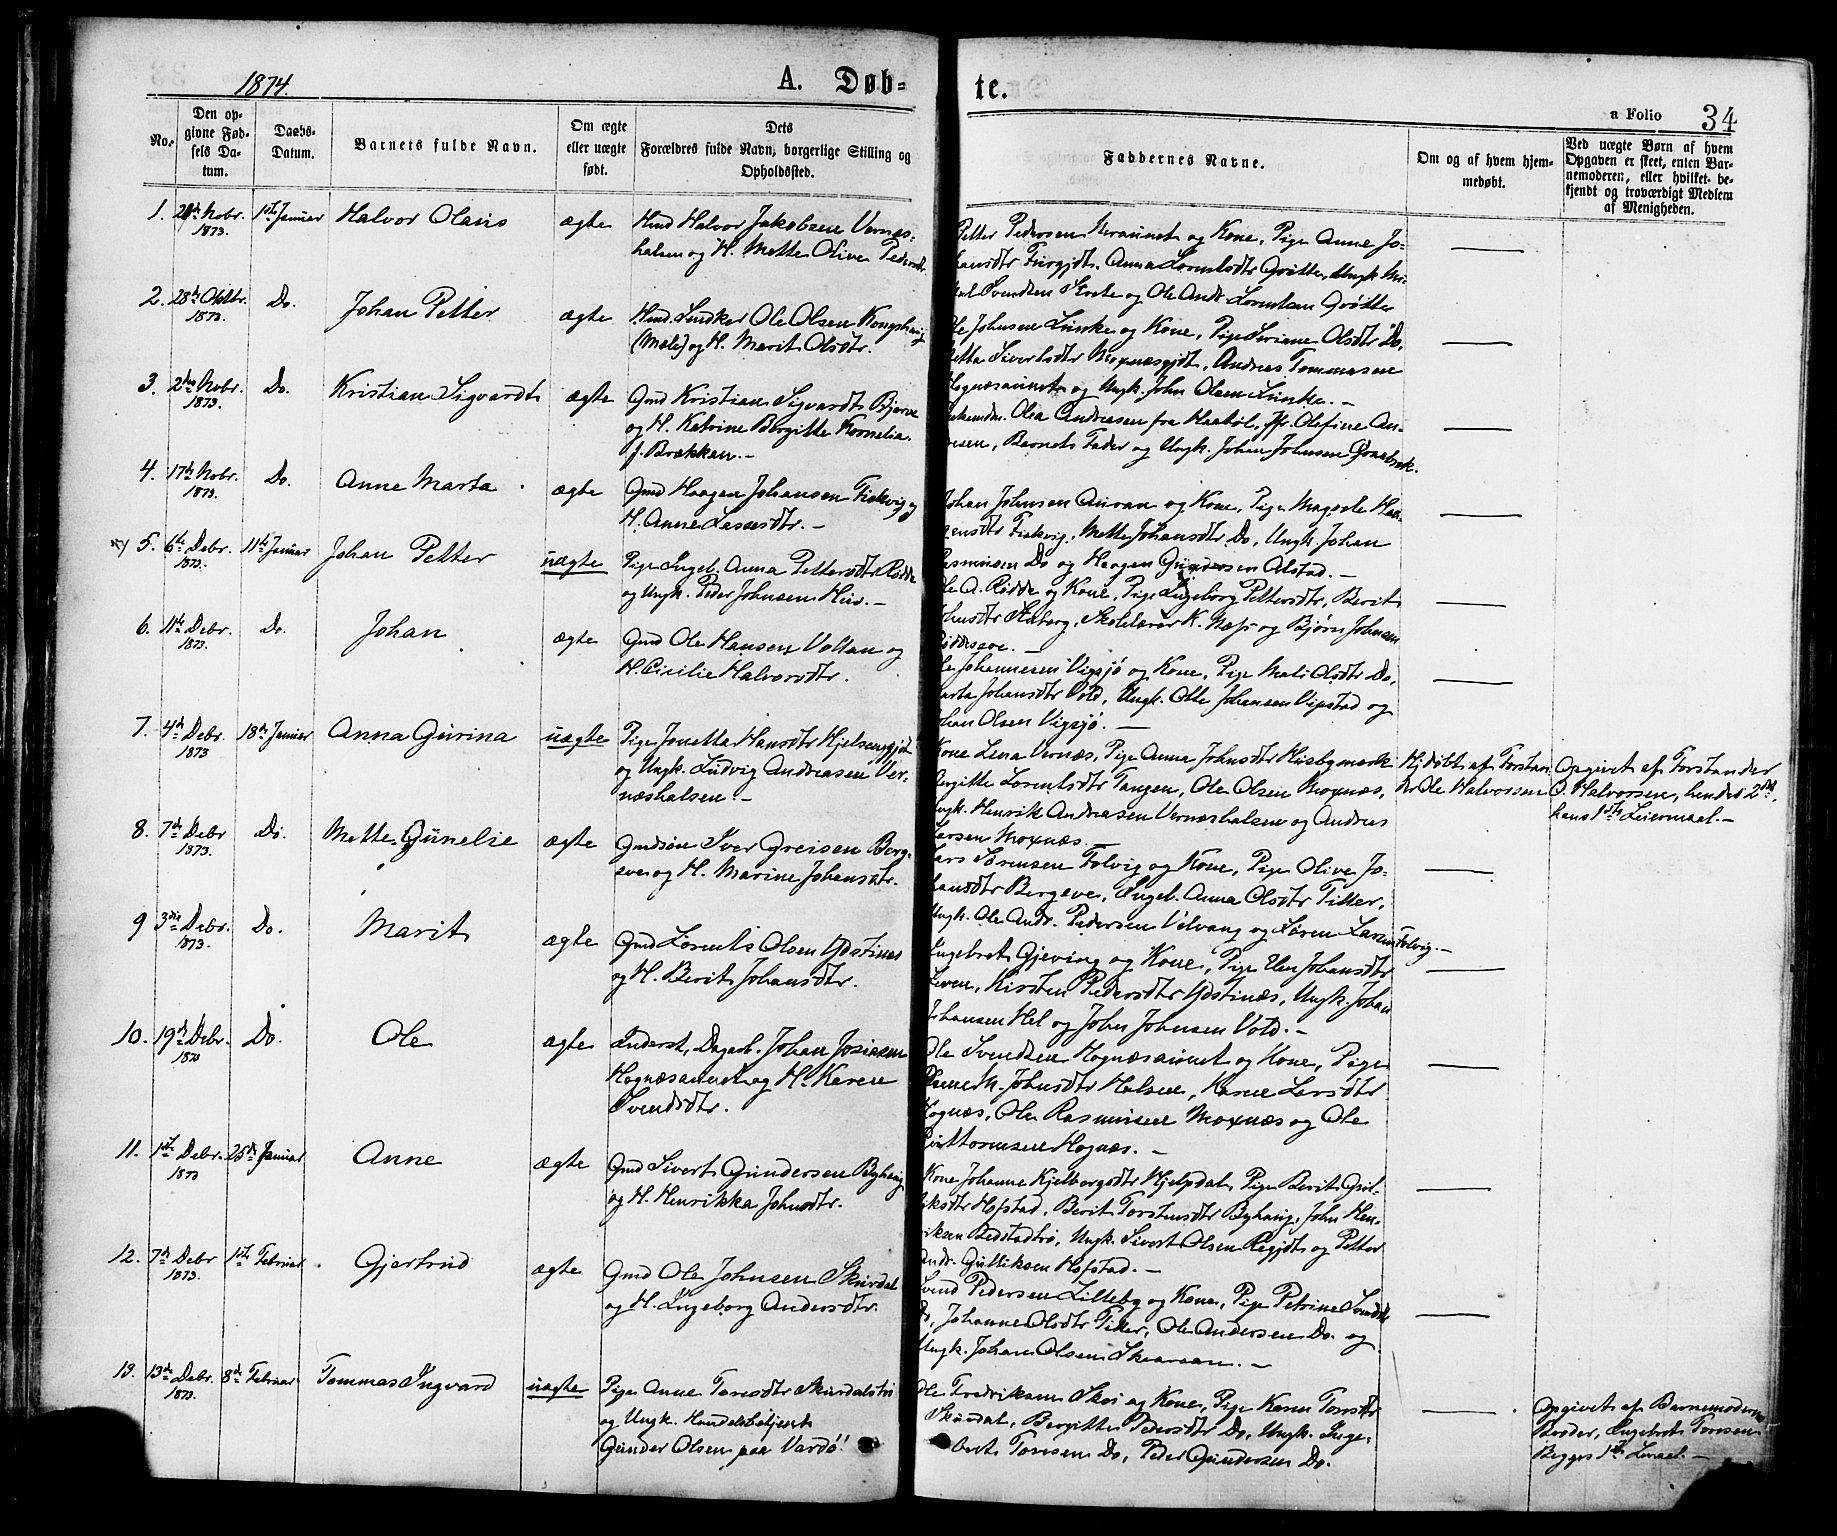 1874.
A. Døb-
te.
a Folio 34
No.
Den op-
givne Fød-
sels Da-
tum.
Daabs-
Datum.
Barnets fulde Navn.
Om ægte
eller uægte
født.
Dets
Forældres fulde Navn, borgerlige Stilling og
Opholdssted.
Faddernes Navne.
Om og af hvem hjem-
medøbt.
Ved uægte Børn af hvem
Opgaven er skeet, enten Bar-
nemoderen, eller hvilket be-
kjendt og troværdigt Medlem
af Menigheden.
1. Nobr. 1873. 1ste Januar Halvor Olaus ægte
Hmd Halvor Jakobsen Vernæs-
halsen og H. Mette Olive Pedersdtr.
Petter Pedersen og Kone, Pige Anne Jo-
hansdtr Anna Lorentsdtr Grøtte, Ungk.
Svendsen og Ole Andr. Lorentsen Grøtte
2. 28de Oktbr. 1873. Do. Johan Petter ægte
Hmd. Ole Olsen Kongshaug
(Mæle) og H. Marit Olsdtr.
Ole Johnsen og Kone, Pige Olsdtr Do,
Sivertsdtr Moxnæsgjdt, Andreas Tommesen
Hognæsaunet og Ungk. John Olsen
3. 2den Nobr. 1873. Do. Kristian Sigvardt ægte
Gmd Kristian Sigvardt Bjerve
og H. Katrine Bergitte Kornelia
f. Brækkan.-
Andreasen fra Haabøl, Fr. Olefine An-
resen, Barnets Fader og Ungk. Johan Johnsen Graabræk.
4. 17de Nobr. 1873. Do. Anne Marta ægte
Gmd Haagen Johansen Fiskvig og
H. Anne Lassesdtr.-
Johan Johnsen Auran og Kone, Pige Magrete Haa-
gensdtr Fiskvig, Mette Johansdtr Do, Ungk. Johan
Rasmussen Do og Haagen Gundersen Alstad.-
5. 6te Debr. 1873. 11te Januar Johan Petter uægte
Pige Ingeb. Anna Pettersdtr Rødde
og Ungk. Peder Johnsen Hus.-
Ole A. Rødde og Kone, Pige Ingeborg Pettersdtr, Berit
Johnsdtr Skaberg, Skolelærer K. Næss og Bjørn Johnsen
Røddesve.-
6. 11te Debr. 1873. Do. Johan ægte
Gmd Ole Hansen Voltan og
H. Cicilie Halvorsdtr.
Ole Johannesen Vigsjø og Kone, Pige Mali Olsdtr Do,
Marta Johansdtr Vold, Ungk. Ole Johansen Vigstad og
Johan Olsen Vigsjø.-
7. 4de Debr. 1873 18de Januar Anna Gurina uægte
Pige Jonetta Hansdtr Hjelsenggjdt
og Ungk. Ludvig Andreasen Ver-
næshalsen.-
Kone Lena Vernæs, Pige Anna Johnsdtr Husbymark
Bergitte Lorentsdtr Tangen, Ole Olsen Moxnæs,
Ungk. Henrik Andreasen Vernæshalsen og Andreas
Larsen Moxnæs.-
Hj.døbt af Forstan-
der Ole Halvorsen
Opgivet af Forstander
O. Halvorsen, hendes 2det,
hans 1ste Leiermaal.-
8. 7de Debr 1873. Do. Mette Gunelie ægte
Gmdsøn Iver Greisen Berg-
sve og H. Marine Johansdtr.
Lars Sørensen Folvig og Kone, Pige Olive Jo-
hansdtr Bergsve, Ingeb. Anna Olsdtr Titter,
Ungk. Ole Andr. Pedersen Velvang og Søren Larsen Folvig.-
9 3die Debr. 1873. Do. Marit ægte
Gmd Lorents Olsen Ydstines
og H. Berit Johansdtr.
Ingebret Gjeving og Kone, Pige Elen Johansdtr
Leren, Kirsten Pedersdtr Ydstinæs, Ungk. Johan
Johansen Hel og John Johnsen Vold.-
10. 19de Debr. 1873 Do. Ole ægte
Inderst, Dagarb. Johan Josiasen
Hognæsaunet og H. Karen
Svendsdtr.
Ole Svendsen Hognæsaunet og Kone, Pige
M. Johnsdtr Halsen, Karen Larsdtr
Hognæs, Ole Rasmussen Moxnæs og Ole
Guttormsen Hognæs.-
11. 1ste Debr. 1873 25de Januar Anne ægte
Gmd Sivert Gundersen Byhaug
og H. Henrikka Johnsdtr.
Kone Johanna Kjelbergsdtr Hjelpdal, Pige Berit Gul-
liksdtr Hofstad, Berit Torstensdtr Byhaug, John Hen-
riksen Ungk. Sivert Olsen og Petter
Andr. Gulliksen Hofstad.-
12. 7de Debr 1873. 1ste Februar Gjertrud ægte
Gmd Ole Johnsen Skurdal
og H. Ingeborg Andersdtr.
Svend Pedersen Lilleby og Kone, Pige Petrine Svendsdtr
Do, Johanne Olsdtr Titter, Ole Andersen Do. og
Ungk. Johan Olsen Skaaraan.-
13. 13de Debr. 1873. 8de Februar Tommas Ingvard uægte
Pige Anne Toresdtr Skurdalstrø
og Ungk. Handelsbetjent
Gunder Olsen paa Vardø!
Ole Fredriksen Skei og Kone, Pige Karen Toresdtr
Skurdal, Bergitte Pedersdtr Do, Ungk. Inge-
bret Toresen Do, Peder Gundersen Do.
Opgivet af Barnemoderens
Broder, Ingebret Toresen.
Begges 1ste Leiermaal.-